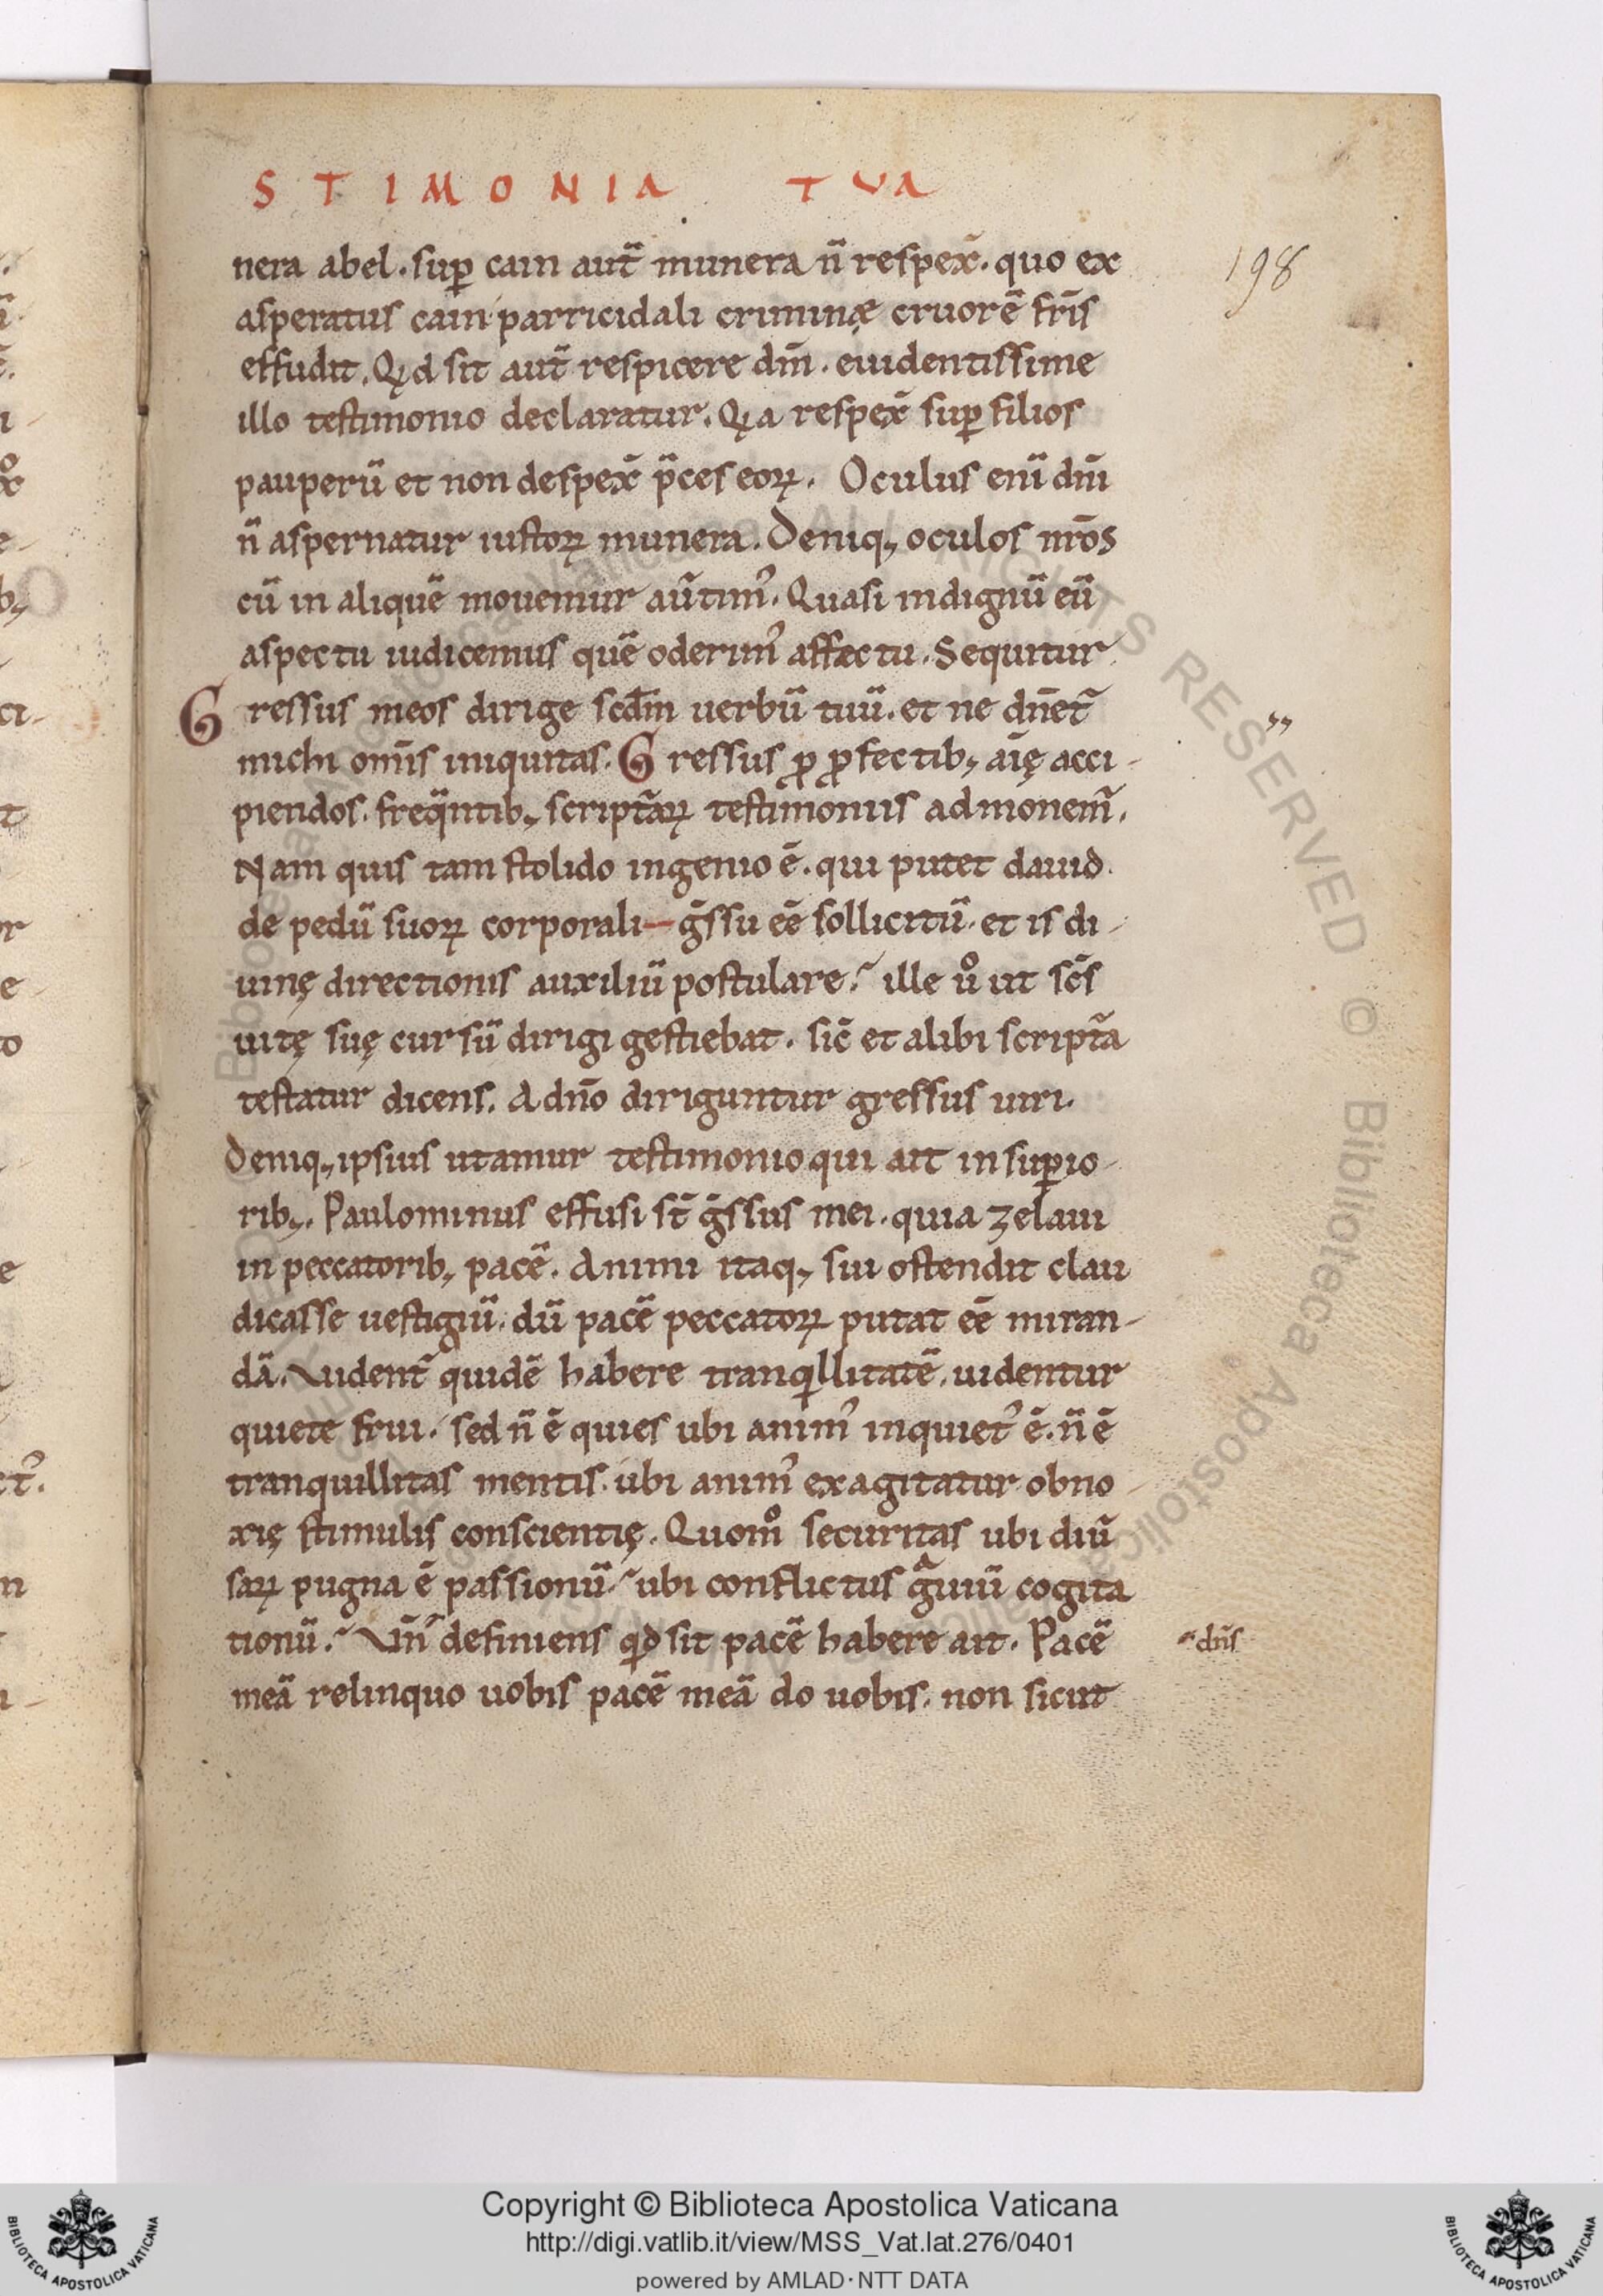 S T I M O N I A T V A
198
nera abel. suꝑ cain aut̄ munera n̄ respex̄. quo ex
asperatus cain parricidali criminæ cruorē fr̄is
effudit. Qͥd sit aut̄ respicere dm̄. euidentissime
illo testimonio declaratur. Qͥa respex̄ suꝑ filios
pauperū et non despex̄ p̄ces eoꝝ. Oculus enī dn̄i
n̄ aspernatur iustoꝝ munera. Deniq; oculos nr̄os
cū in aliquē mouemur aūtimꝰ. Quasi indignū eū
aspectu iudicemus quē oderimꝰ affectu. Sequitur
Gressus meos dirige scdm̄ uerbū tuū. et ne dn̄et᷑
michi om̄is iniquitas. Gressus ꝓ ꝓfectib; aīę acci-
piendos. freq̄ntib; scriptᷓaꝝ testimoniis admonem᷑.
Nam quis tam stolido ingenio ē. qui putet dauid
de pedū suoꝝ corporali ḡssu ēe sollicitū. et is di-
uinę directionis auxiliū postulare? ille uͦ ut sc̄s
uitę suę cursū dirigi gestiebat. sic̄ et alibi scriptᷓa
testatur dicens. A dn̄o diriguntur gressus uiri.
Deniq; ipsius utamur testimonio qui ait in suꝑio-
rib;. Paulominus effusi st̄ ḡssus mei. quia zelaui
in peccatorib; pacē. Animi itaq; sui ostendit clau
dicasse uestigiū. dū pacē peccatoꝝ putat ēe miran-
dā. Vident᷑ quidē habere tranqͥllitatē. uidentur
quiete frui. sed n̄ ē quies ubi animꝰ inquietꝰ ē. n̄ ē
tranquillitas mentis. ubi animꝰ exagitatur obno-
xię stimulis conscientię. Quomͦ securitas ubi diū
saꝝ pugna ē passionū? ubi conflictus gᷓuiū cogita
tionū? Vn̄ definiens qͥd sit pacē habere ait. Pacē
dn̄s
meā relinquo uobis pacē meā do uobis. non sicut
Copyright © Biblioteca Apostolica Vaticana
http://digi.vatlib.it/view/MSS_Vat.lat.276/0401
powered by AMLAD·NTT DATA
BIBLIOTECA APOSTOLICA VATICANA
BIBLIOTECA APOSTOLICA VATICANA